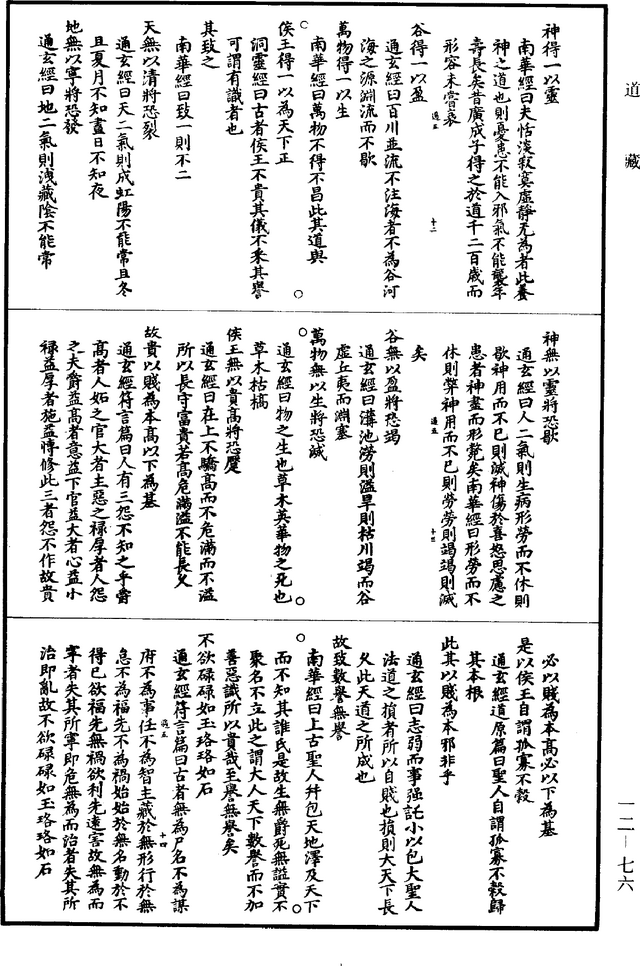 道藏
神得一以靈
南華經曰夫恬淡寂寞虛靜无為者此養
神之道也則憂患不能入邪氣不能襲年
壽長矣昔廣成子得之於道千二百歲而
形容未嘗衰
谷得一以盈
通玄經曰百川並流不注海者不為谷河
海之源淵流而不歇
萬物得一以生
南華經曰萬物不得不昌此其道與
侯王得一以為天下正
洞靈經曰古者侯王不貴其儀不采其譽
可謂有識者也
其致之
南華經曰致一則不二
天無以清將恐裂
通玄經曰天二氣則成虹陽不能常且冬
且夏月不知晝日不知夜
地無以寧將恐發
通玄經曰地二氣則洩藏陰不能常
神無以靈將恐歇
通玄經曰人二氣則生病形勞而不休則
歇神用而不已則滅神傷於喜怒思慮之
患者神盡而形斃矣南華經曰形勞而不
休則弊神用而不已則勞勞則竭竭則滅
矣
谷無以盈將恐竭
通玄經曰溝池澇則溢旱則枯川竭而谷
虛丘夷而淵塞
萬物無以生將恐滅
通玄經曰物之生也草木英華物之死也
草木枯槁
侯王無以貴高將恐蹷
通玄經曰在上不驕高而不危滿而不溢
所以長守富貴若高危滿溢不能長久
故貴以賤為本高以下為基
通玄經符言篇曰人有三怨不知之乎爵
高者人妬之官大者主惡之祿厚者人怨
之夫爵益高者意益下官益大者心益小
祿益厚者施益博修此三者怨不作故貴
必以賤為本高必以下為基
是以侯王自謂孤寡不穀
通玄經道原篇曰聖人自謂孤寡不穀歸
其本根
此其以賤為本邪非乎
通玄經曰志弱而事强託小以包大聖人
法道之損者所以自賤也損則大天下長
久此天道之所成也
故致數譽無譽
南華經曰上古聖人并包天地澤及天下
而不知其誰氏是故生無爵死無謚實不
聚名不立此之謂大人天下數譽而不加
善惡識所以貴哉至譽無譽矣
不欲碌碌如玉珞珞如石
通玄經符言篇曰古者無為尸名不為謀
府不為事任不為智主藏於無形行於無
怠不為福先不為禍始始於無名動於不
得已欲福先無禍欲利先遠害故無為而
寧者失其所寧即危無為而治者失其所
治即亂故不欲碌碌如玉珞珞如石
一二—七六